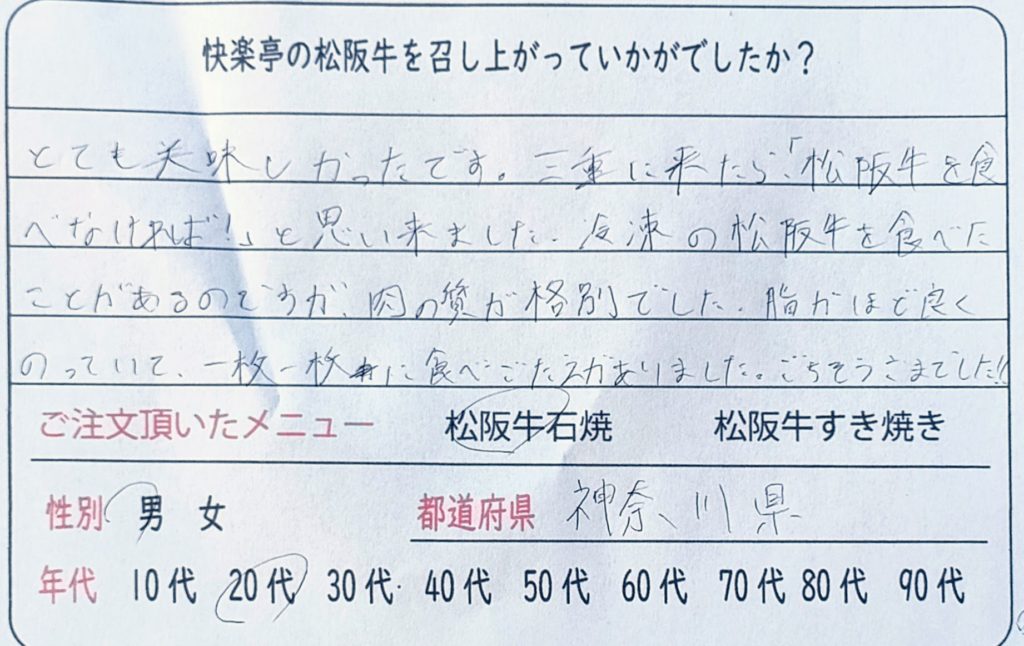 快楽亭の松阪牛を召し上がっていかがでしたか？
とても美味しかったです。三重に来たら「松阪牛を食
べなければ！」と思い来ました。冷凍の松阪牛を食べた
ことがあるのですが、肉の質が格別でした。脂がほど良く
のっていて、一枚一枚に食べごたえがありました。ごちそうさまでした!!
ご注文頂いたメニュー 松阪牛石焼 松阪牛すき焼き
性別 男 女 都道府県 神奈川県
年代 10代 20代 30代 40代 50代 60代 70代 80代 90代